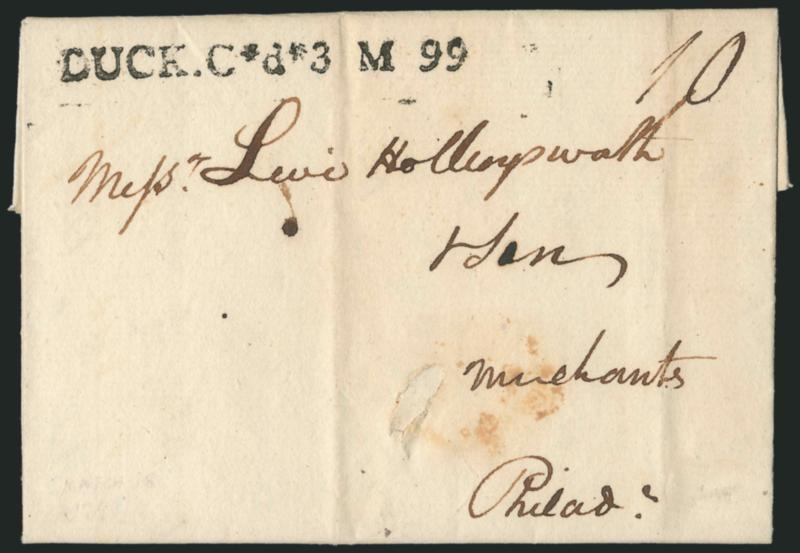 DUCK.C*d*3 M 99
10
Messr. Levi Hollingsworth
& Son
Merchants
Philada.